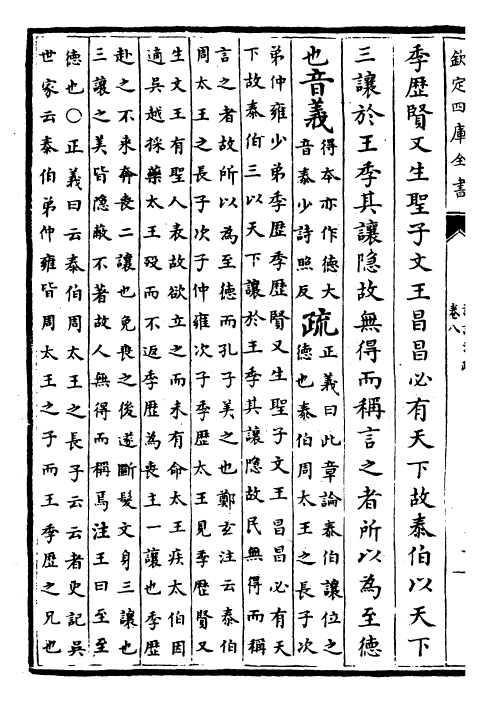 欽定四庫全書
卷八
季歷賢又生聖子文王昌昌必有天下故泰伯以天下
三讓於王季其讓隱故無得而稱言之者所以為至德
也音義
得本亦作德大
音泰少詩照反
疏
正義曰此章論泰伯讓位之
德也泰伯周太王之長子次
弟仲雍少弟季歷季歷賢又生聖子文王昌昌必有天
下故泰伯三以天下讓於王季其讓隱故民無得而稱
言之者故所以為至德而孔子美之也鄭玄注云泰伯
周太王之長子次子仲雍次子季歷太王見季歷賢又
生文王有聖人表故欲立之而未有命太王疾太伯因
適吳越採藥太王殁而不返季歷為喪主一讓也季歷
赴之不來奔喪二讓也免喪之後遂斷髮文身三讓也
三讓之美皆隱蔽不著故人無得而稱焉注王曰至至
德也○正義曰云泰伯周太王之長子云云者史記吳
世家云泰伯弟仲雍皆周太王之子而王季歷之兄也